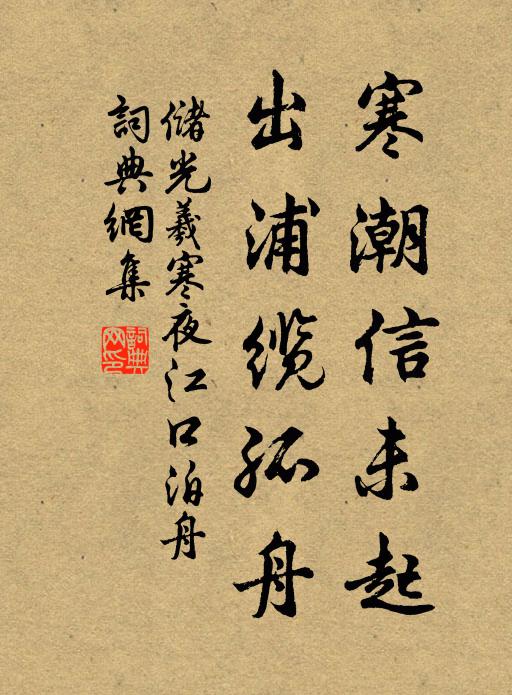 寒潮信未起
出浦缆孤舟
储光羲寒夜江口泊舟
詞典網集
詞典网印